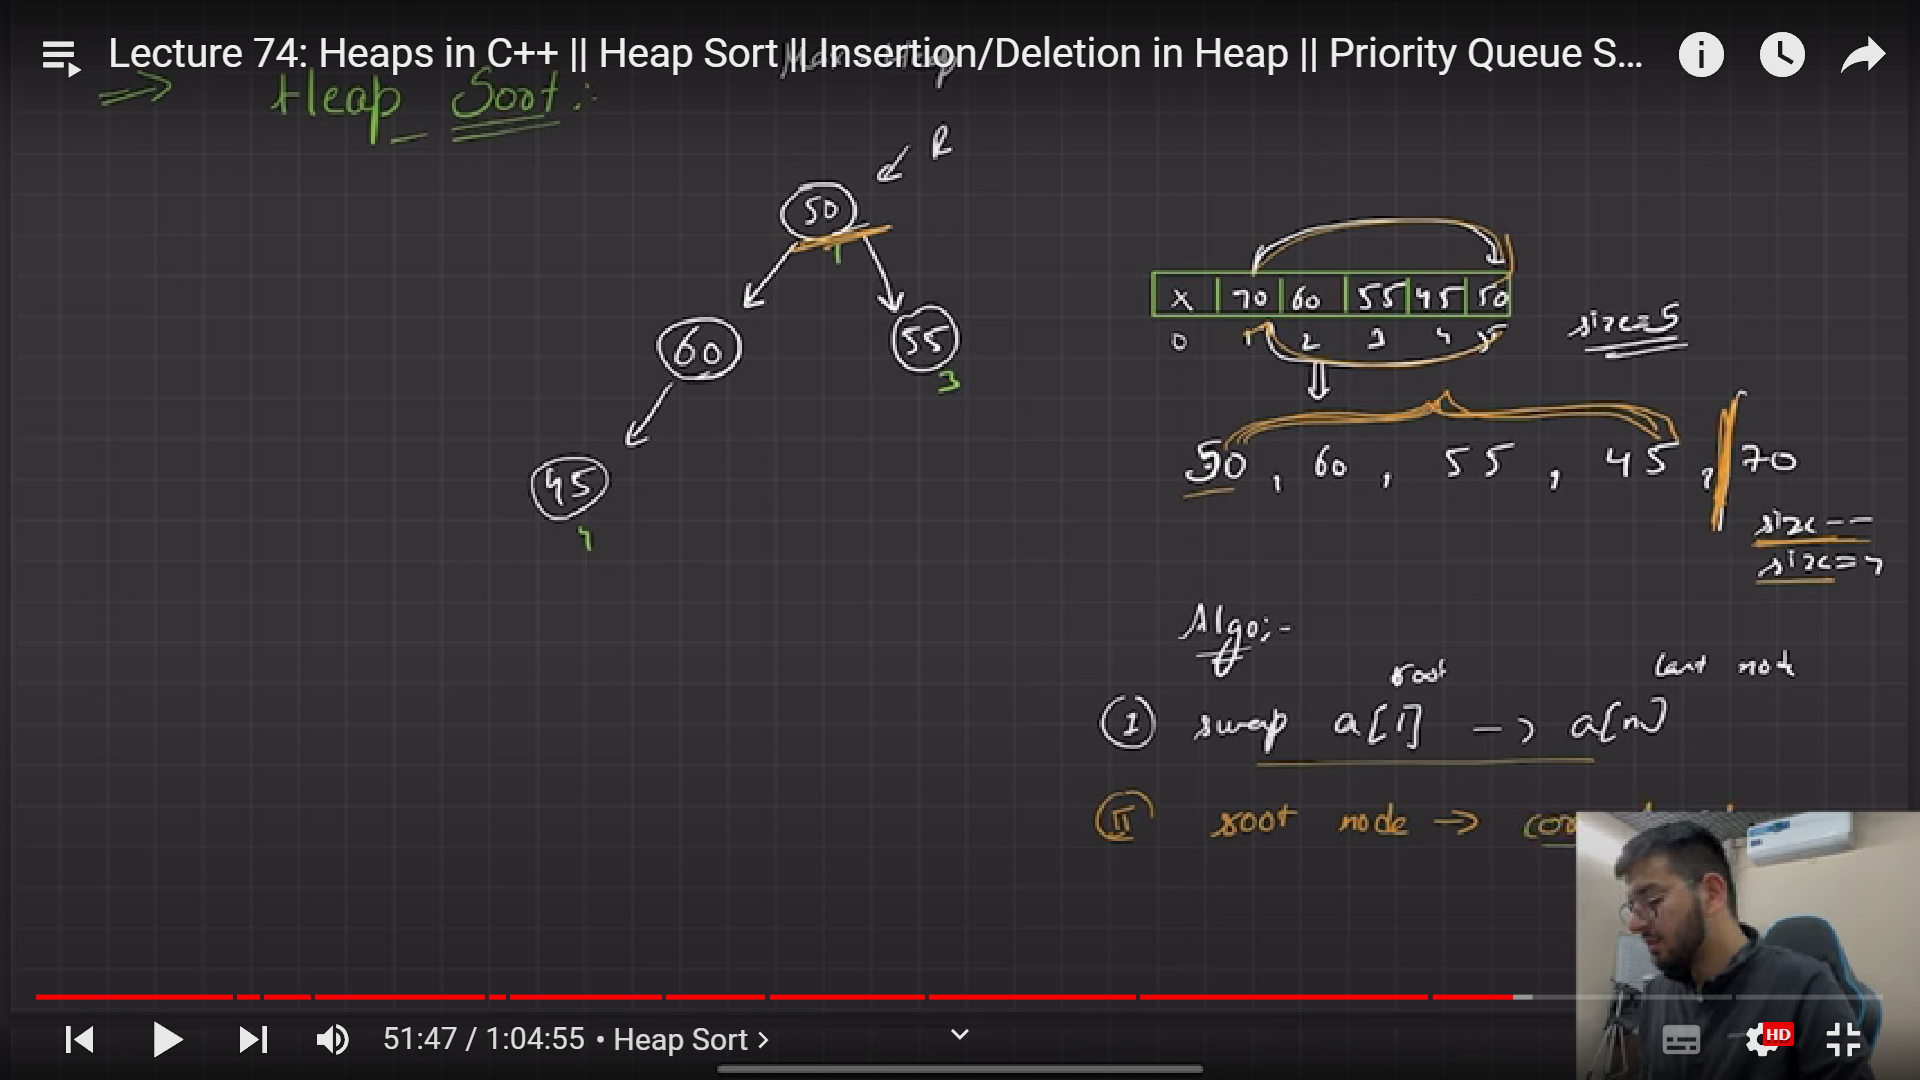 Lecture 74: Heaps in C++ || Heap Sort || Insertion/Deletion in Heap || Priority Queue S...
Heap Sort :-
R
50
1
60
55
3
45
4
X 70 60 55 45 50
0 1 2 3 4 5
size=5
50, 60, 55, 45, 70
size--
size=4
Algo:-
root
last node
I swap a[1] -> a[n]
II root node ->
51:47 / 1:04:55 • Heap Sort >
HD